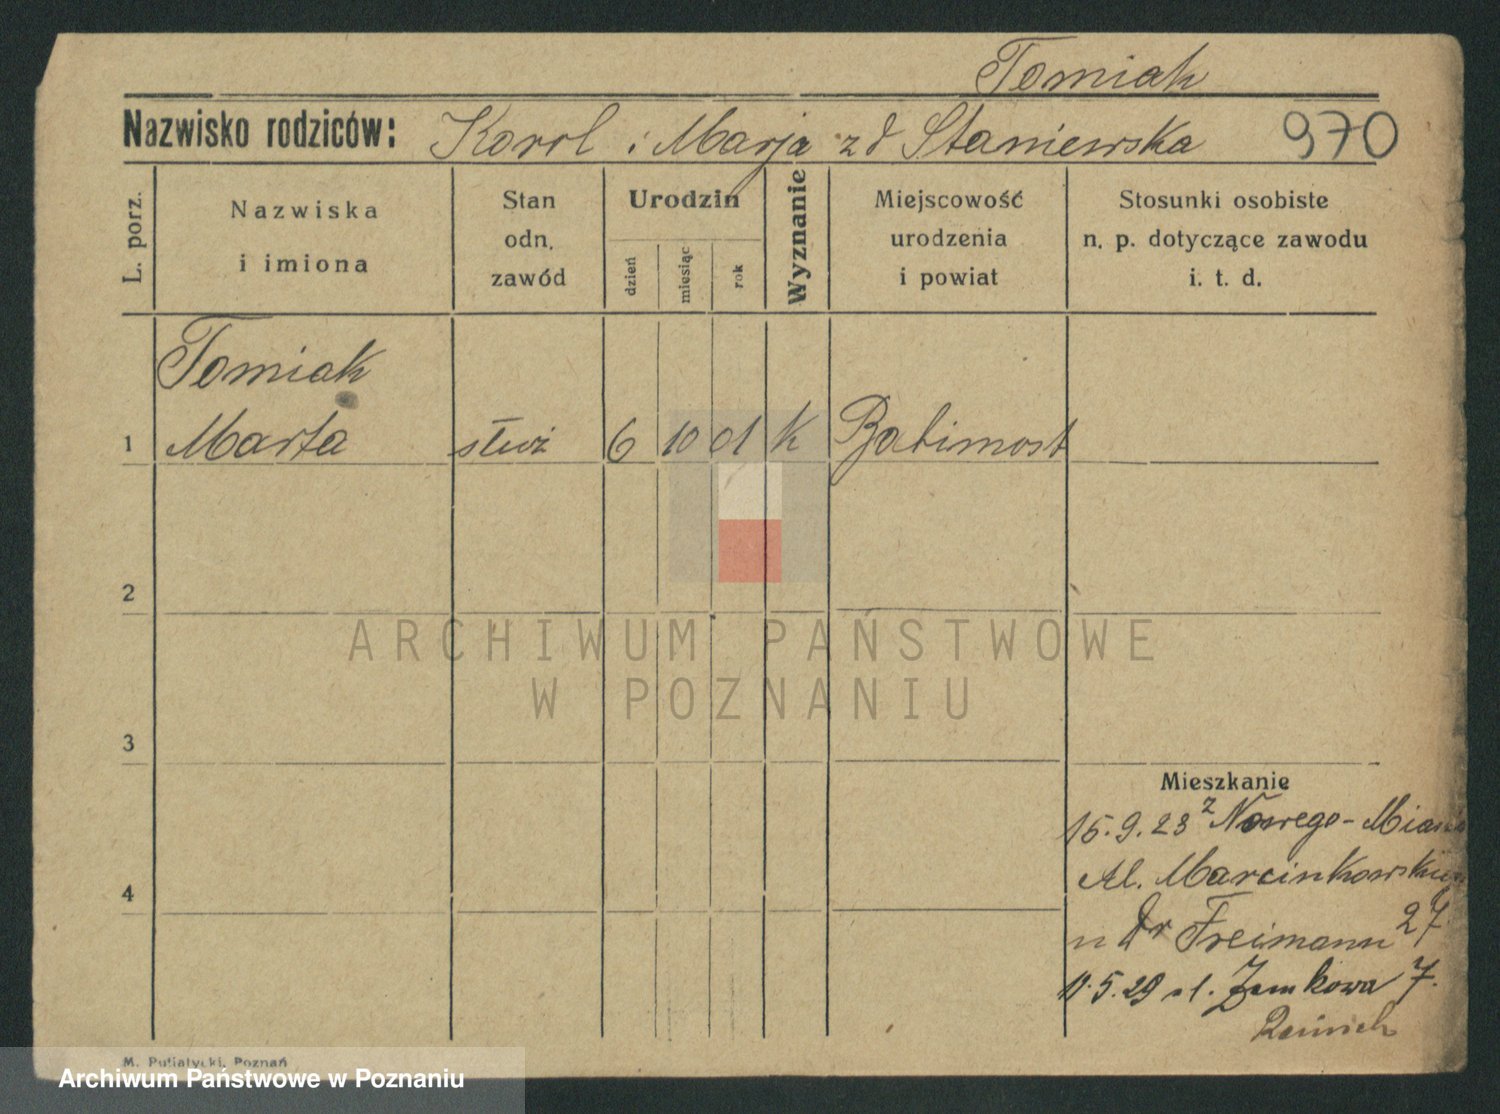 Tomiak
Nazwisko rodziców: Karol i Marja zd Staniewska 970
L. porz.
Nazwiska
i imiona
Stan
odn.
zawód
Urodzin
dzień
miesiąc
rok
Wyznanie
Miejscowość
urodzenia
i powiat
Stosunki osobiste
n. p. dotyczące zawodu
i. t. d.
Tomiak
1 Marta służ 6 10 01 k Babimost
2
ARCHIWUM PAŃSTWOWE
W POZNANIU
3
Mieszkanie
15.9.23 z Nowego-Miasta
4
Al. Marcinkowskiego
u Dr Freimann 27
11.5.29 ul. Zamkowa 7.
M. Putiatycki, Poznań
Archiwum Państwowe w Poznaniu